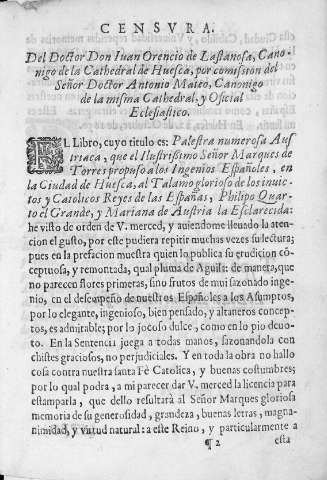 CENSVRA.
Del Doctor Don Iuan Orencio de Lastanosa, Cano-
nigo de la Cathedral de Huesca, por comission del
Señor Doctor Antonio Mateo, Canonigo
de la misma Cathedral, y Oficial
Eclesiastico.
EL Libro, cuyo titulo es: Palestra numerosa Aus
triaca, que el Ilustrissimo Señor Marques de
Torres propuso a los Ingenios Españoles, en
la Ciudad de Huesca, al Talamo glorioso de los inuic
tos y Catolicos Reyes de las Españas, Philipo Quar
to el Grande, y Mariana de Austria la Esclarecida:
he visto de orden de V. merced, y auiendome lleuado la aten
cion el gusto, por este pudiera repitir muchas vezes su lectura;
pues en la prefacion muestra quien lo publica su erudicion cō
ceptuosa, y remontada, qual pluma de Aguila: de manera, que
no parecen flores primeras, sino frutos de mui sazonado inge-
nio, en el desempeño de nuestros Españoles a los Asumptos,
por lo elegante, ingenioso, bien pensado, y altaneros concep-
tos, es admirable; por lo jocoso dulce, como en lo pio deuo-
to. En la Sentencia juega a todas manos, sazonandola con
chistes graciosos, no perjudiciales. Y en toda la obra no hallo
cosa contra nuestra santa Fè Catolica, y buenas costumbres;
por lo qual podra, a mi parecer dar V. merced la licencia para
estamparla, que dello resultarà al Señor Marques gloriosa
memoria de su generosidad, grandeza, buenas letras, magna-
nimidad, y virtud natural: a este Reino, y particularmente a
¶ 2 esta